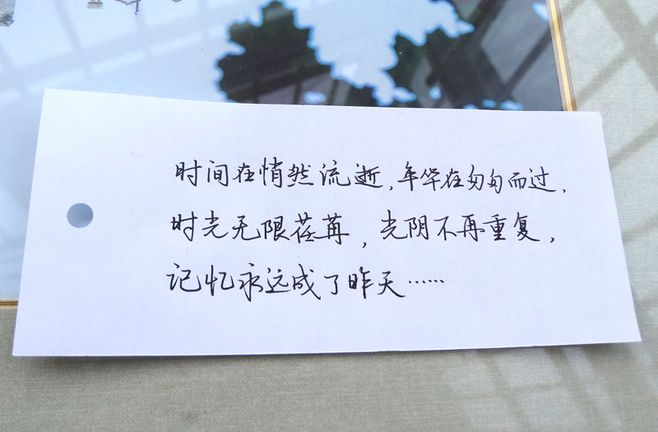 时间在悄然流逝，年华在匆匆而过，
时光无限荏苒，光阴不再重复，
记忆永远成了昨天……